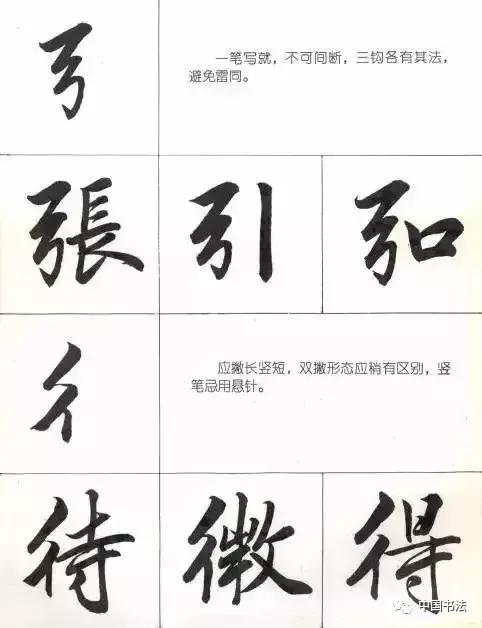 弓
一笔写就，不可间断，三钩各有其法，
避免雷同。
張 引 弘
彳
应撇长竖短，双撇形态应稍有区别，竖
笔忌用悬针。
待 微 得
中国书法